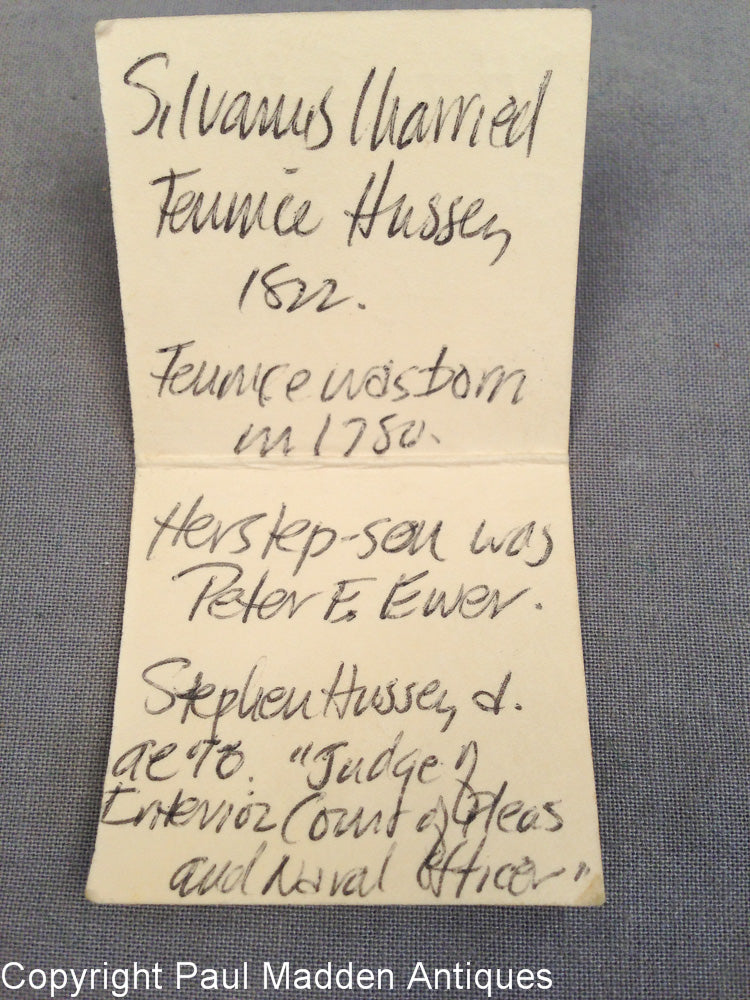 Silvanus Married
Feunice Hussey
1822.
Feunice was born
in 1780.
Her step-son was
Peter F. Ewer.
Stephen Hussey d.
ae 78. "Judge of
Enterior Court of Pleas
and Naval Officer"
Copyright Paul Madden Antiques